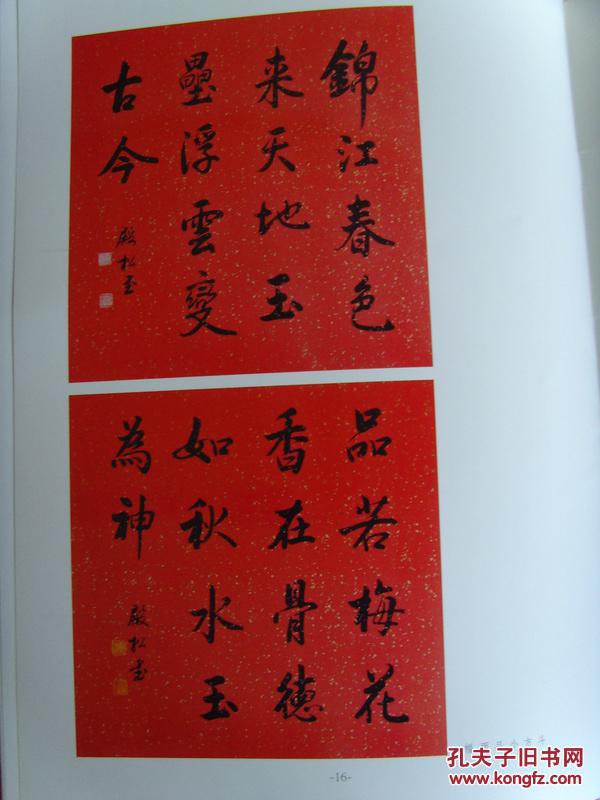 錦江春色
来天地玉
壘浮雲變
古今
品若梅花
香在骨德
如秋水玉
為神
-16-
孔夫子旧书网
www.kongfz.com